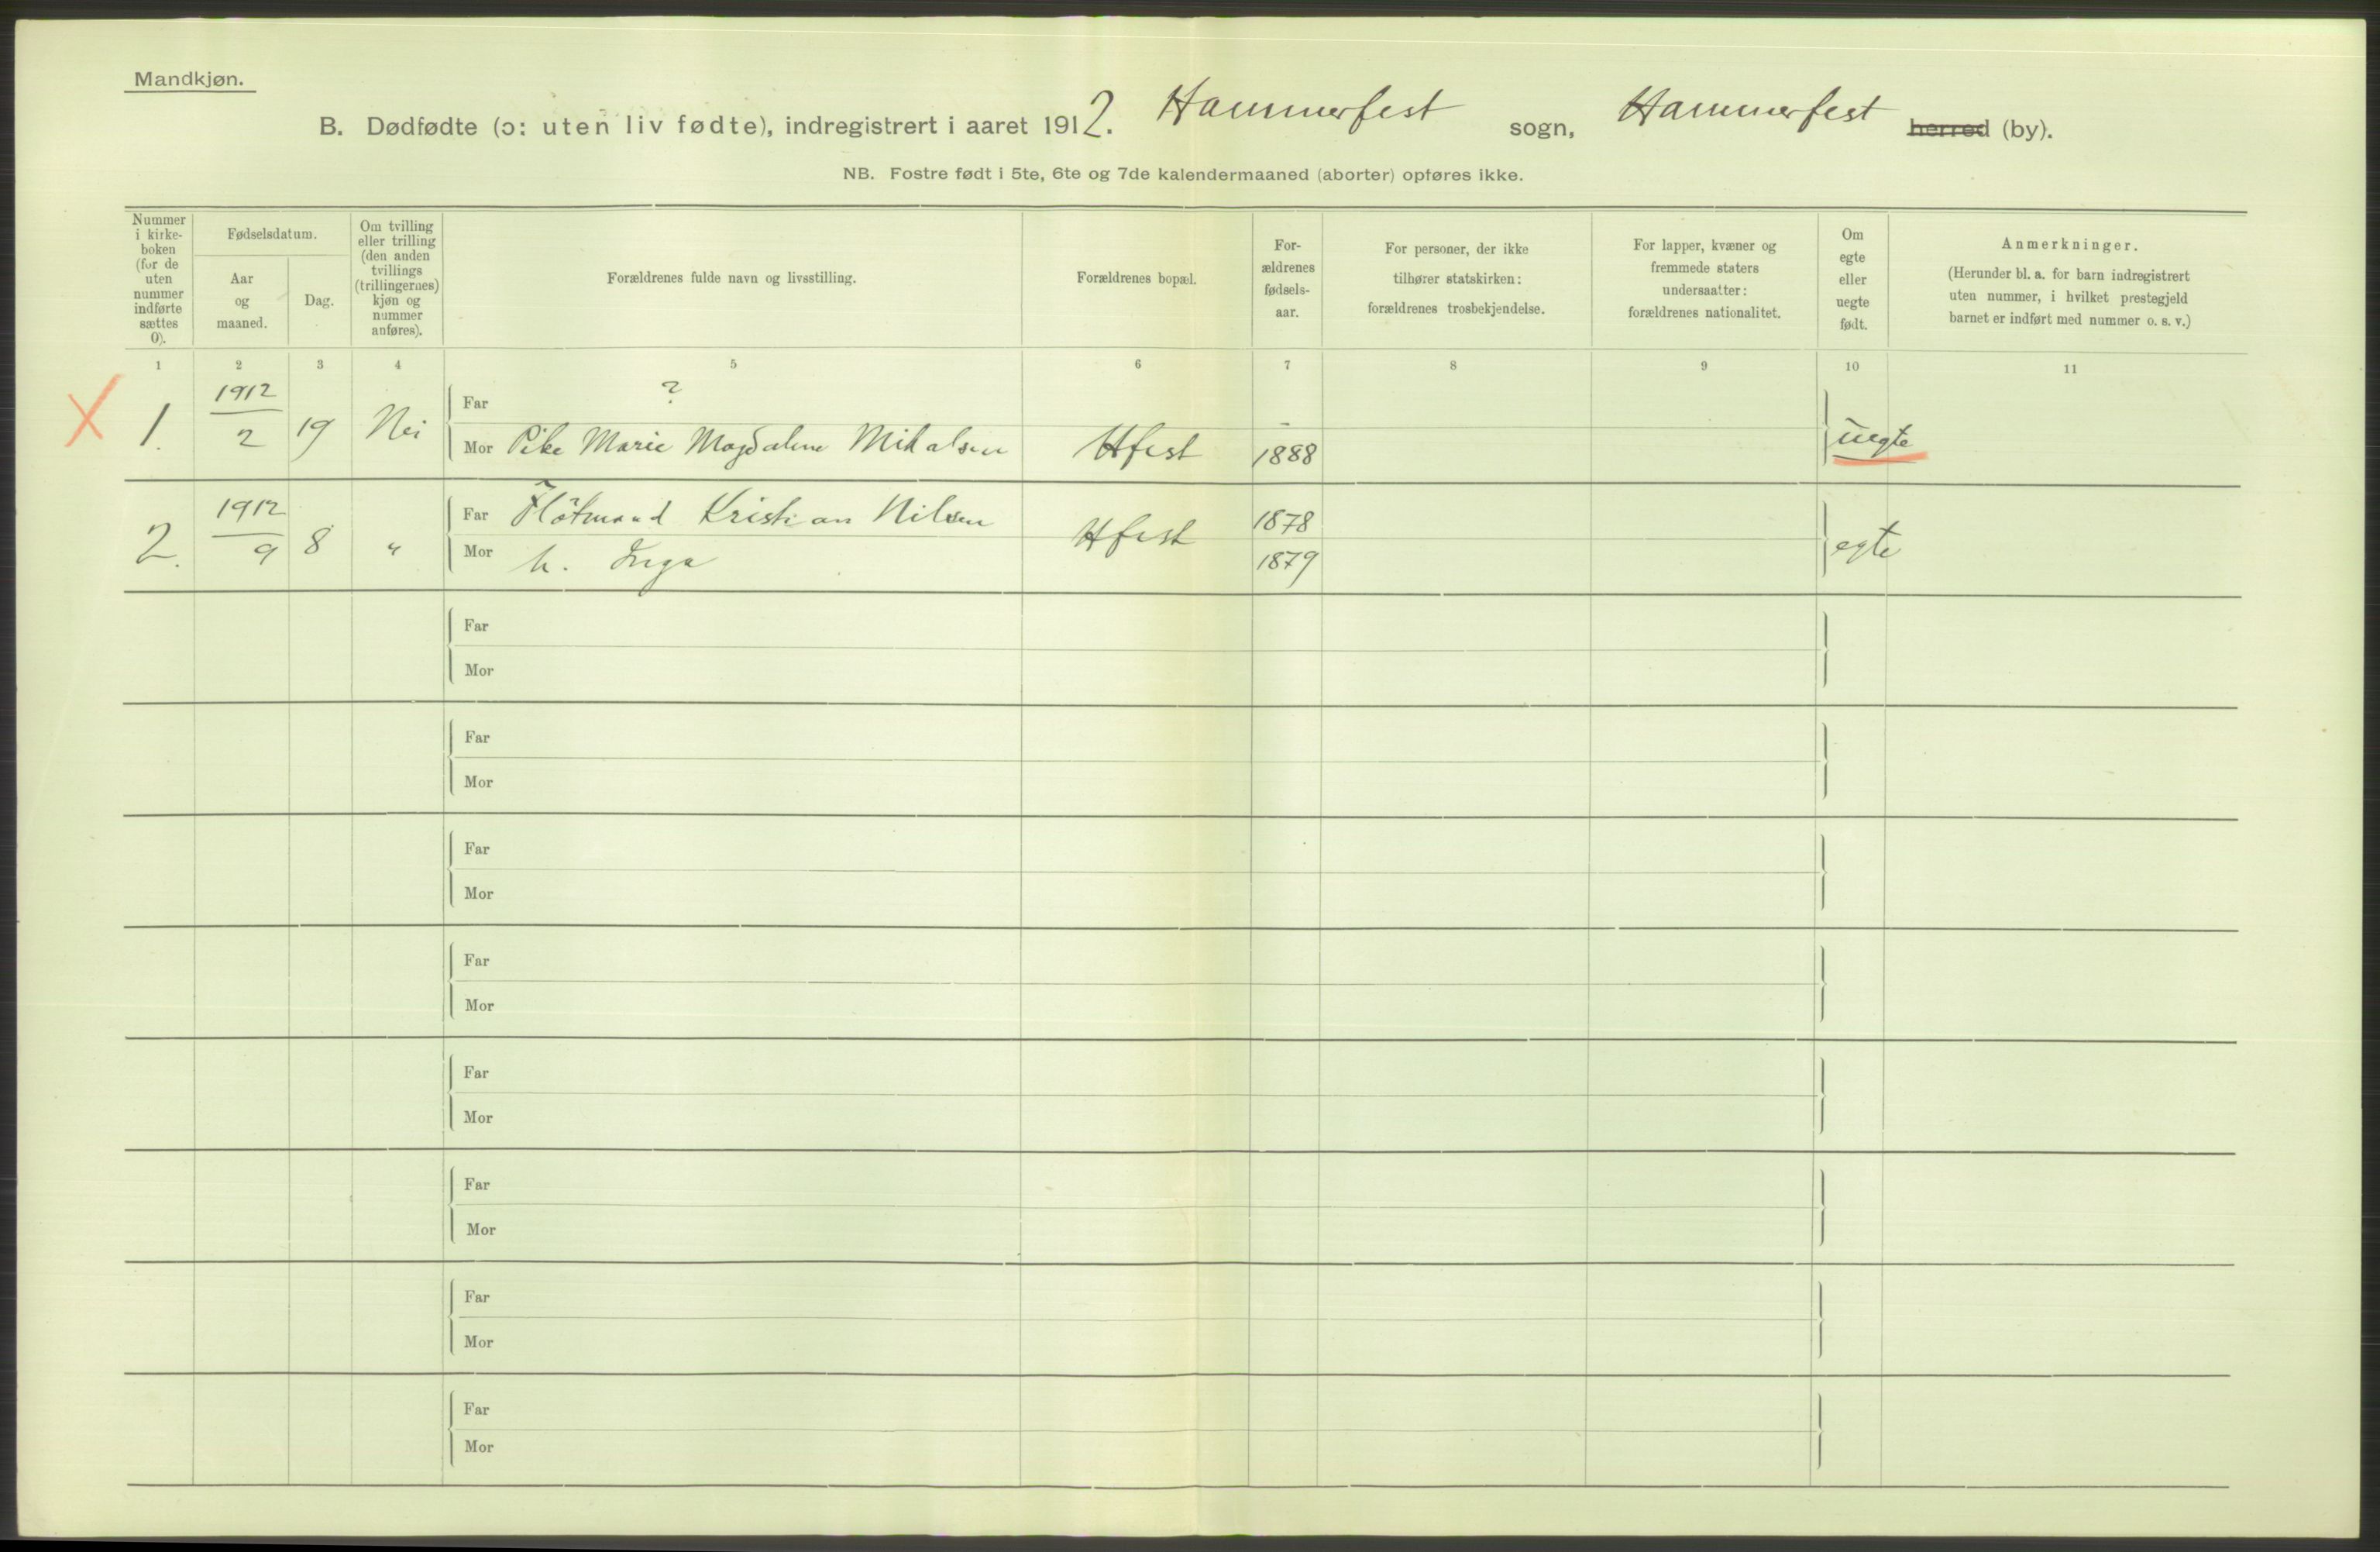 Mandkjøn.
B. Dødfødte (ɔ: uten liv fødte), indregistrert i aaret 1912. Hammerfest sogn, Hammerfest herred (by).
NB. Fostre født i 5te, 6te og 7de kalendermaaned (aborter) opføres ikke.
Nummer
i kirke-
boken
(for de
uten
nummer
indførte
sættes
0).
Fødselsdatum.
Aar
og
maaned.
Dag.
Om tvilling
eller trilling
(den anden
tvillings
(trillingernes)
kjøn og
nummer
anføres).
Forældrenes fulde navn og livsstilling.
Forældrenes bopæl.
For-
ældrenes
fødsels-
aar.
For personer, der ikke
tilhører statskirken:
forældrenes trosbekjendelse.
For lapper, kvæner og
fremmede staters
undersaatter:
forældrenes nationalitet.
Om
egte
eller
uegte
født.
Anmerkninger.
(Herunder bl. a. for barn indregistrert
uten nummer, i hvilket prestegjeld
barnet er indført med nummer o. s. v.)
1 2 3 4 5 6 7 8 9 10 11
1. 1912 2 19 Nei
Far ? -
Mor Pike Marie Magdalene Mikalsen Hfest 1888 uegte
2. 1912 9 8 "
Far Flötmand Kristian Nilsen Hfest 1878 egte
Mor h. Inga 1879
Far
Mor
Far
Mor
Far
Mor
Far
Mor
Far
Mor
Far
Mor
Far
Mor
Far
Mor